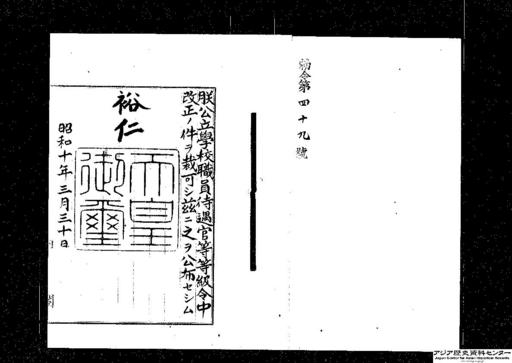 勅令第四十九號
朕公立學校職員待遇官等等級令中
改正ノ件ヲ裁可シ茲ニ之ヲ公布セシム
裕仁
天皇御璽
昭和十年三月三十日
アジア歴史資料センター
Japan Center for Asian Historical Records